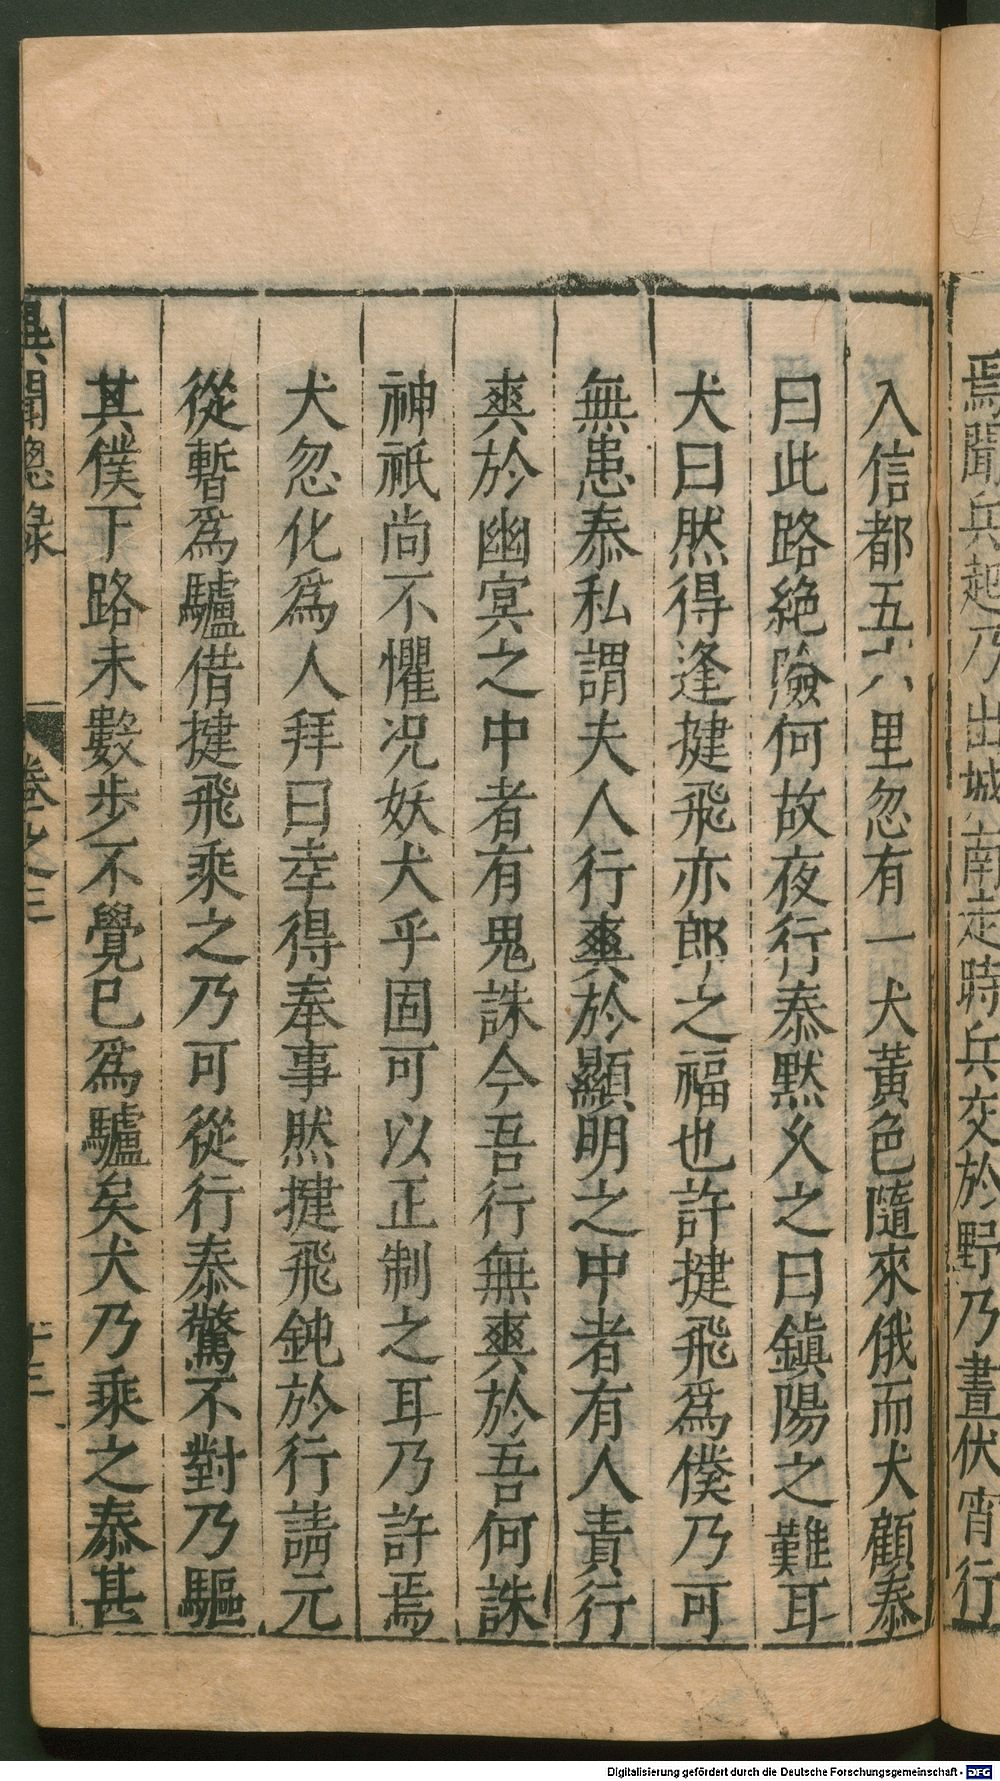 焉聞兵起乃出城南走時兵交於野乃晝伏宵行
入信都五六里忽有一犬黃色隨來俄而犬顧泰
曰此路絕險何故夜行泰默久之曰鎮陽之難耳
犬曰然得逢捷飛亦郎之福也許捷飛爲僕乃可
無患泰私謂夫人行爽於顯明之中者有人責行
爽於幽冥之中者有鬼誅今吾行無爽於吾何誅
神祇尚不懼况妖犬乎固可以正制之耳乃許焉
犬忽化爲人拜曰幸得奉事然捷飛鈍於行請元
從暫爲驢借捷飛乘之乃可從行泰驚不對乃驅
其僕下路未數步不覺已爲驢矣犬乃乘之泰甚
異聞總錄 卷之三 十三
Digitalisierung gefördert durch die Deutsche Forschungsgemeinschaft - DFG